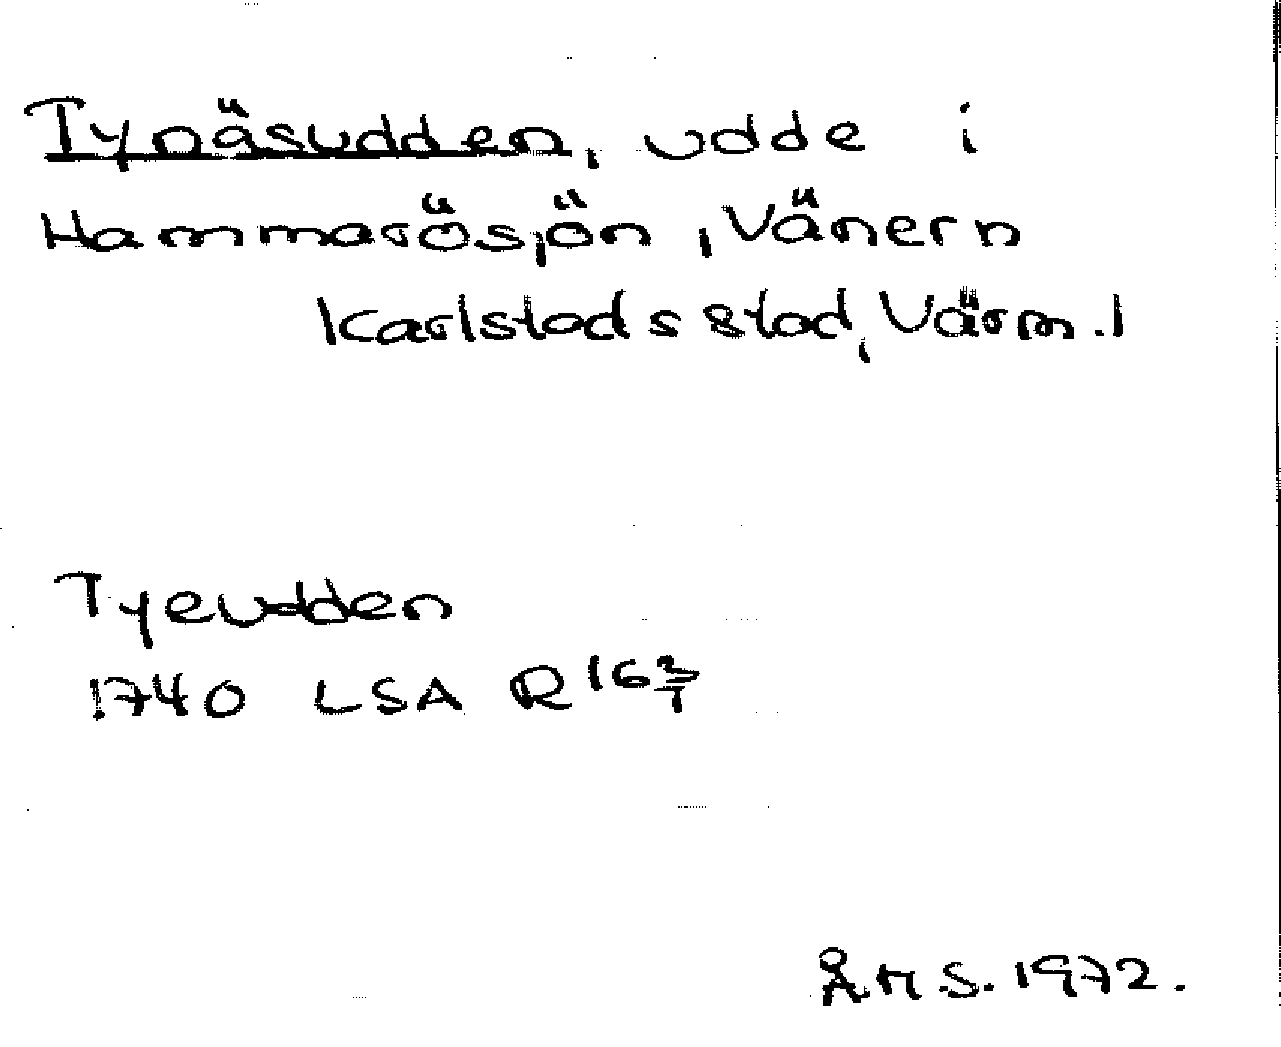 Tynäsudden, udde i
Hammarösjön, Vänern
Karlstads stad, Värm. l
Tyeudden
1740 LSA R 16 2/1
Å.M.S. 1972.